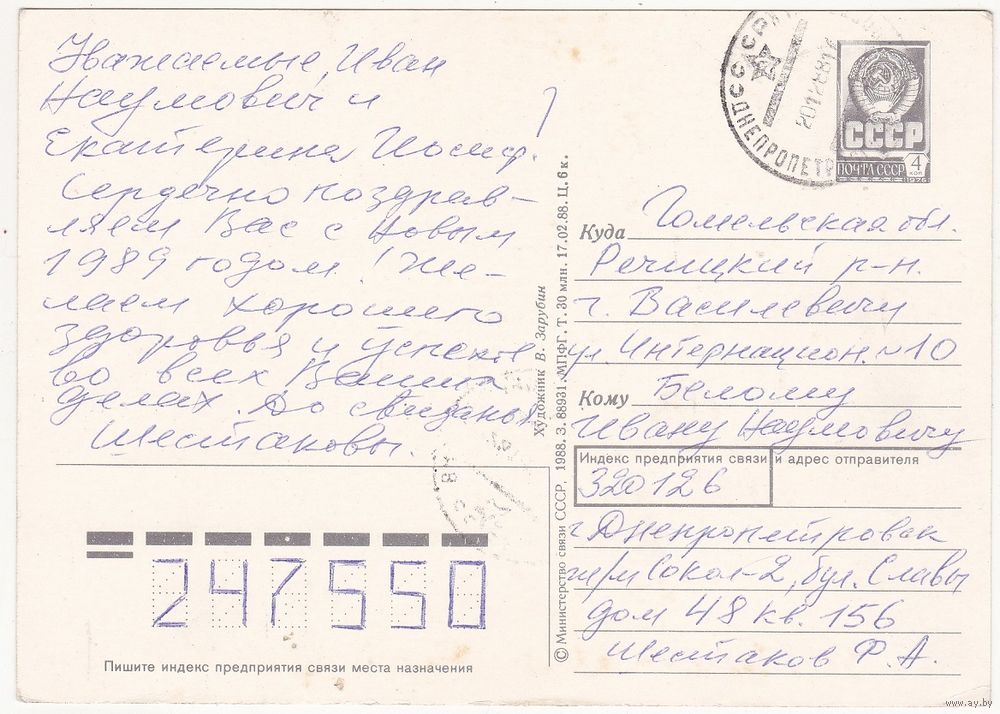 Уважаемые Иван
Наумович и
Екатерина Иосиф.
Сердечно поздрав-
ляем Вас с Новым
1989 годом! Же-
лаем хорошего
здоровья и успехов
во всех Ваших
делах. До свиданья
Шестаковы.
СССР
ДНЕПРОПЕТР
СССР
ПОЧТА СССР
4
коп
1976
Куда Гомельская обл.
Речицкий р-н.
г. Василевичи
ул. Интернацион. №10
Кому Белому
Ивану Наумовичу
Индекс предприятия связи и адрес отправителя
320126
г. Днепропетровск
ж/м Сокол-2, бул. Славы
дом 48 кв. 156
Шестаков Ф. А.
Художник В. Зарубин
© Министерство связи СССР, 1988. З. 88931. МПФГ. Т. 30 млн. 17.02.88. Ц. 6 к.
247550
Пишите индекс предприятия связи места назначения
www.ay.by